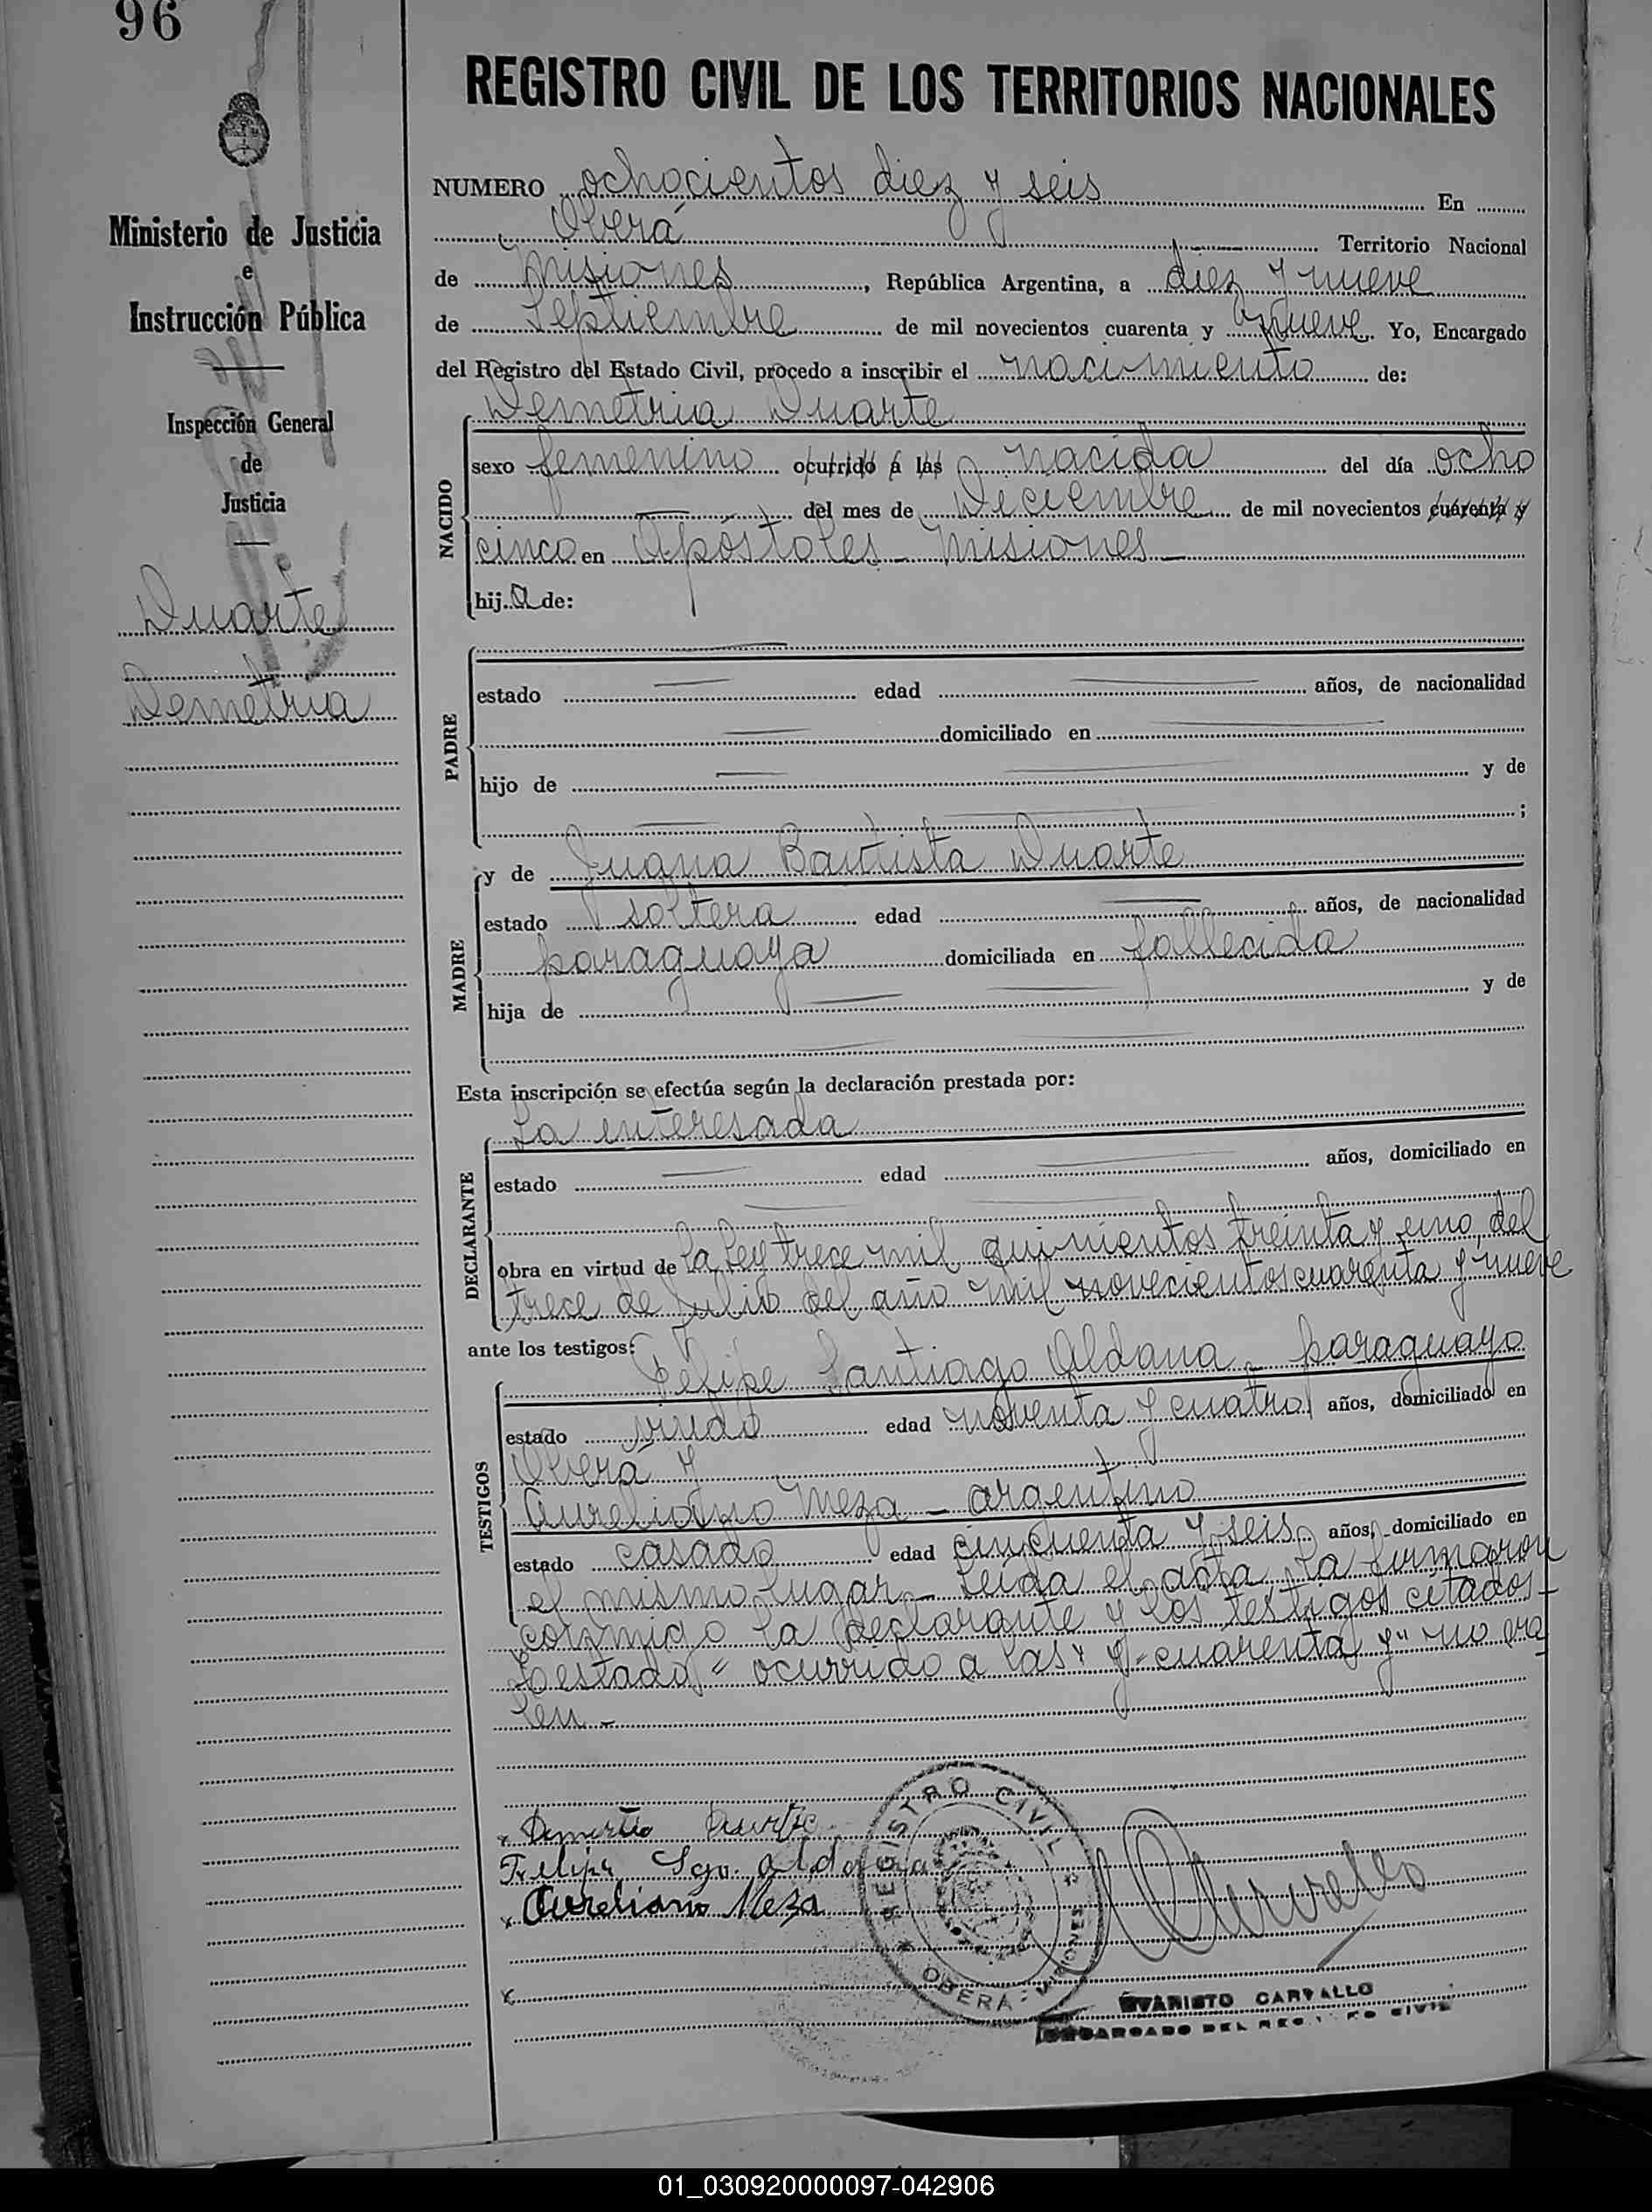 96
REGISTRO CIVIL DE LOS TERRITORIOS NACIONALES
NUMERO ochocientos diez y seis En
Oberá Territorio Nacional
de Misiones, República Argentina, a diez y nueve
de Septiembre de mil novecientos cuarenta y nueve Yo, Encargado
del Registro del Estado Civil, procedo a inscribir el nacimiento de:
Ministerio de Justicia
e
Instrucción Pública
Inspección General
de
Justicia
Duarte
Demetria
NACIDO
Demetria Duarte
sexo femenino ocurrido a las nacida del día ocho
del mes de Diciembre de mil novecientos cuarenta y
cinco en Apóstoles - Misiones -
hija de:
PADRE
estado edad años, de nacionalidad
domiciliado en
hijo de y de
;
MADRE
y de Juana Bautista Duarte
estado soltera edad años, de nacionalidad
paraguaya domiciliada en fallecida
hija de y de
Esta inscripción se efectúa según la declaración prestada por:
DECLARANTE
La interesada
estado edad años, domiciliado en
obra en virtud de la Ley trece mil quinientos treinta y uno, del
trece de Julio del año mil novecientos cuarenta y nueve
ante los testigos:
TESTIGOS
Felipe Santiago Aldana - paraguayo
estado viudo edad noventa y cuatro años, domiciliado en
Oberá y
Aureliano Meza - argentino
estado casado edad cincuenta y seis años, domiciliado en
el mismo lugar - Leída el acta, la firmaron
conmigo la declarante y los testigos citados -
Testado " ocurrido a las " y " cuarenta y " no va
len -
Demetria Duarte
Felipe Sgo. Aldana
Aureliano Meza
REGISTRO CIVIL
OBERA - MISIONES
EVARISTO CARVALLO
ENCARGADO DEL REGISTRO CIVIL
01_030920000097-042906